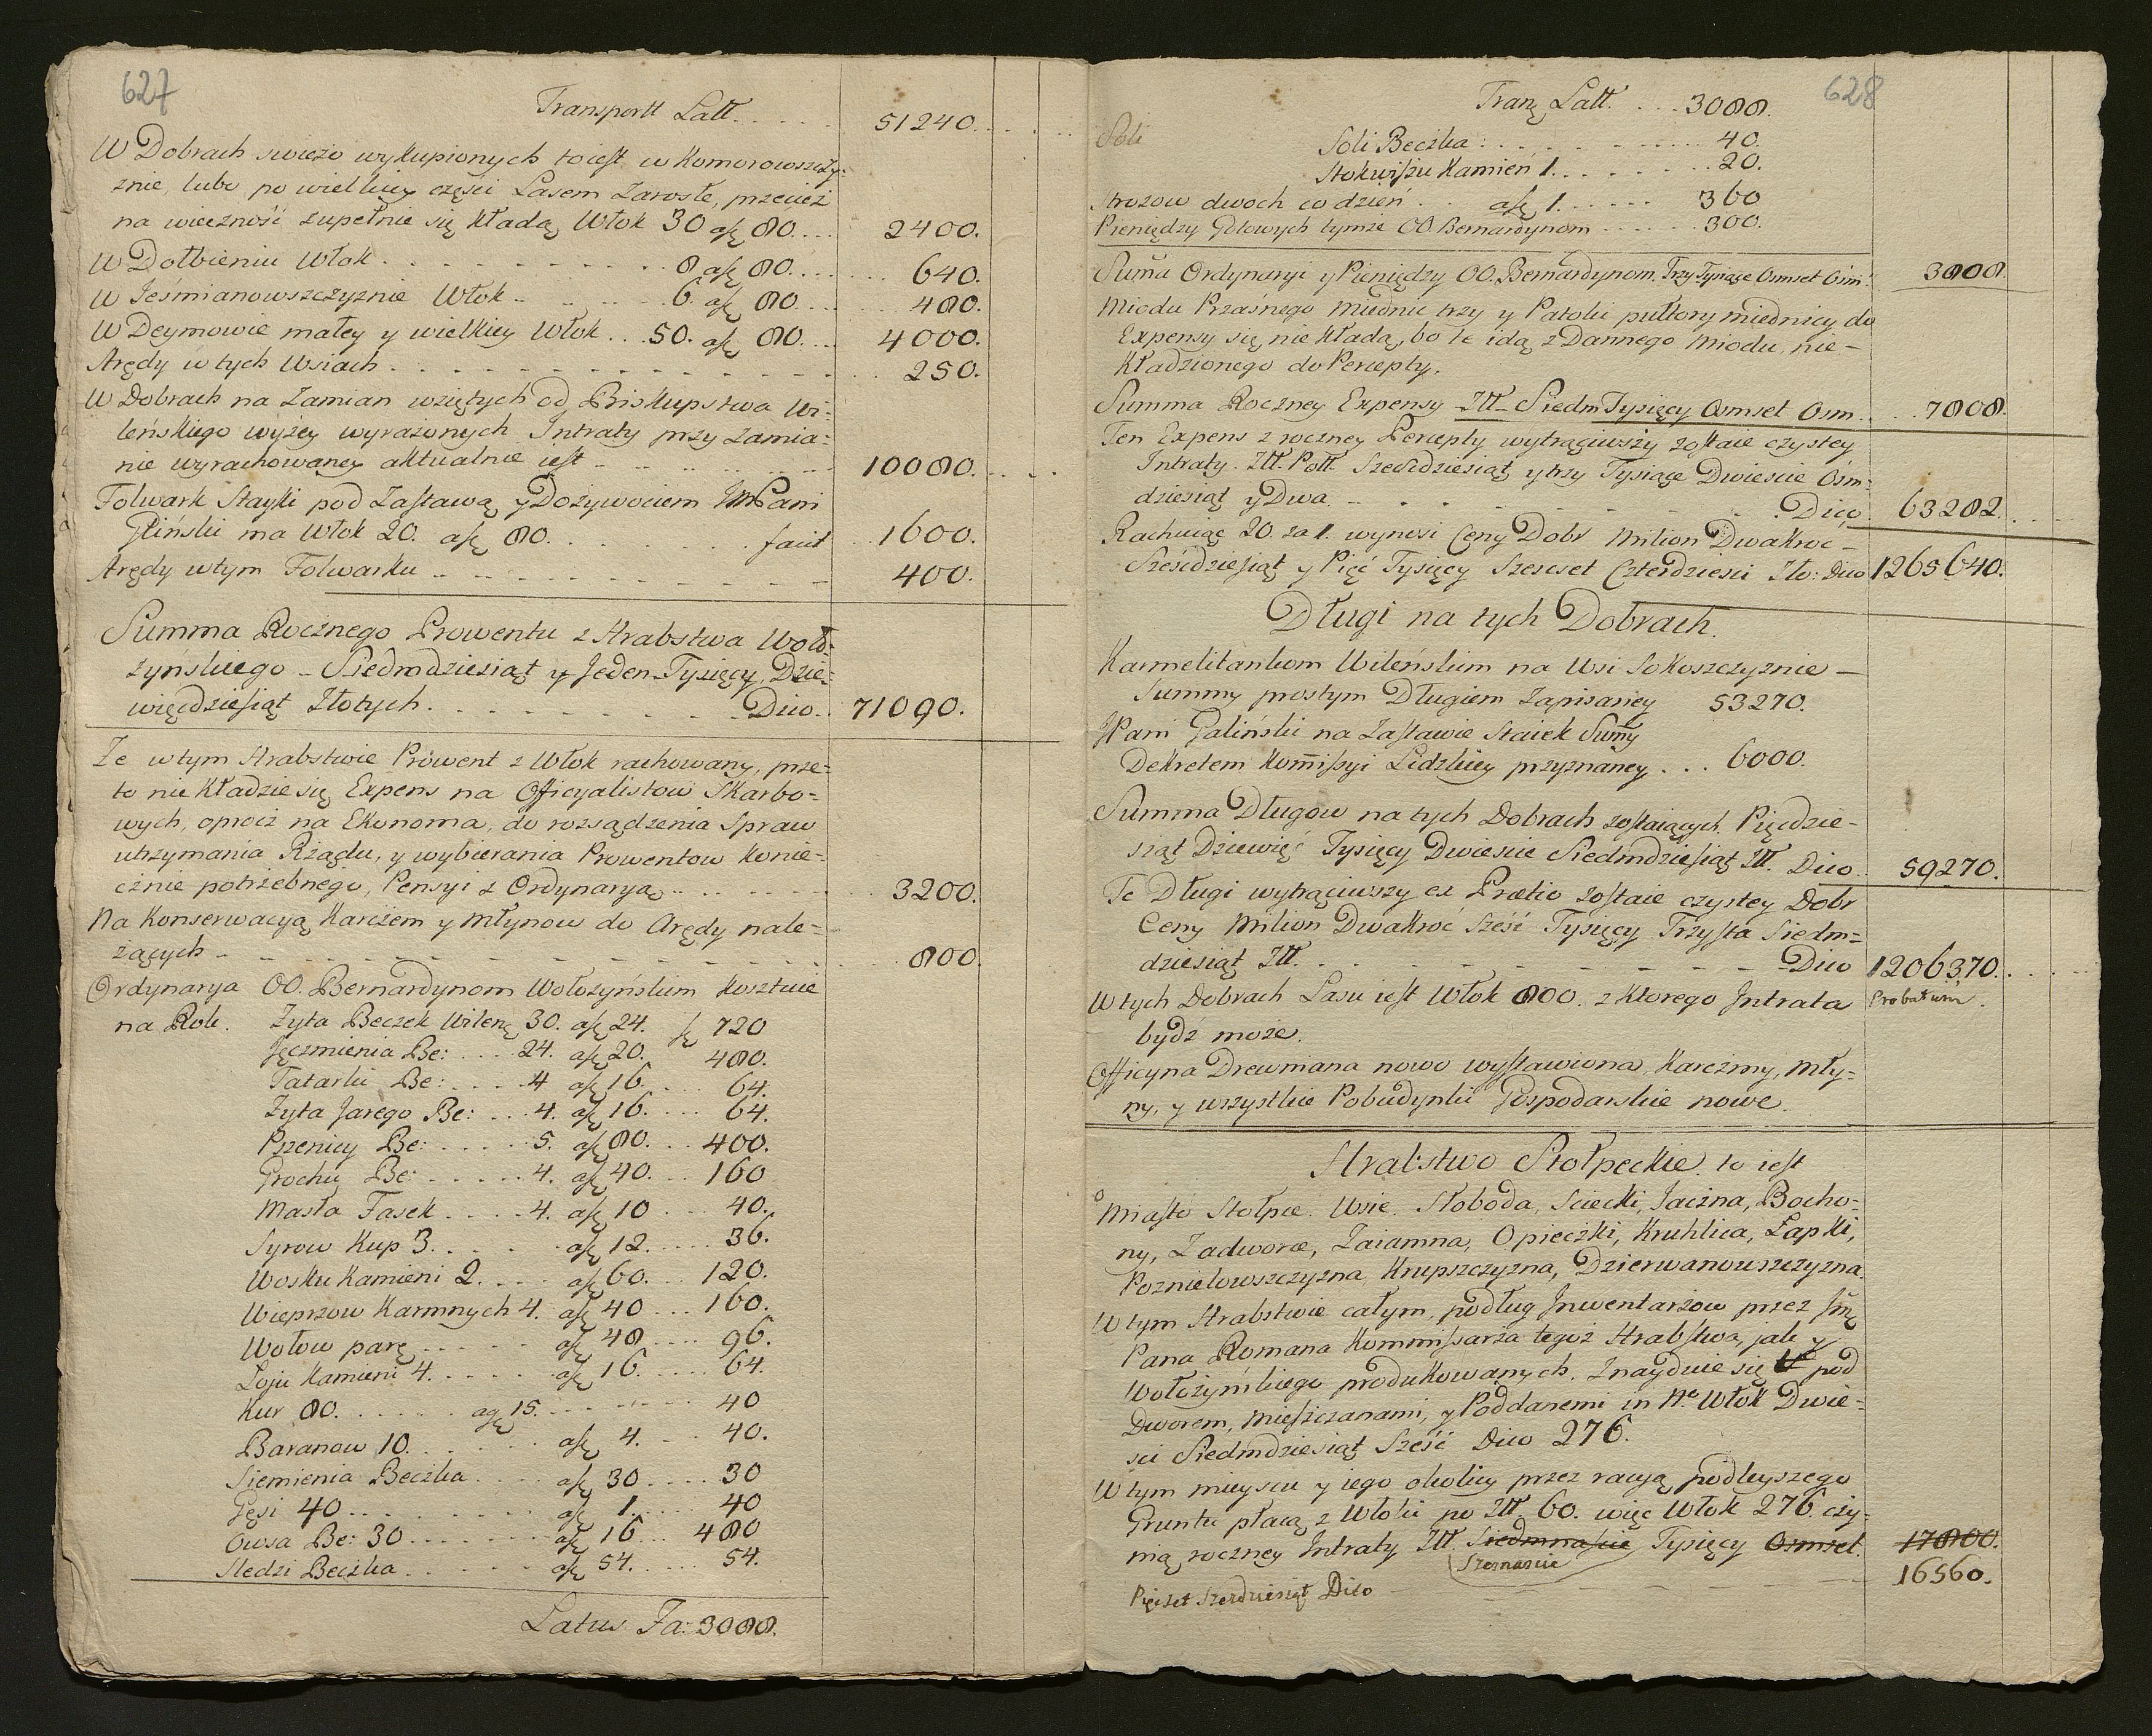 627
Transportt Latt. 51240.
W Dobrach swieżo wykupionych to iest w Komorowszczy:
znie, lubo po wielkiey części Lasem Zarosłe, przecież
na wieczność zupełnie się kładą Włok 30 a ƒ 80. 2400.
W Dołbieniu Włok 8 a ƒ 80. 640.
W Jeśmianowszczyznie Włok 6. a ƒ 80 480.
W Deymowie małey y wielkiey Włok 50. a ƒ 80. 4000.
Arędy w tych Wsiach 250.
W Dobrach na Zamian wziętych od Biskupstwa Wi:
leńskiego wyżey wyrażonych Intraty przy zamia:
nie wyrachowaney aktualnie iest 10080.
Folwark Stayki pod Zastawą y Dożywociem JmPani
Gliński ma Włok 20. a ƒ 80. facit 1600.
Arędy w tym Folwarku 400.
Summa Rocznego Prowentu z Hrabstwa Woło:
żyńskiego – Siedmdziesiąt y Jeden Tysięcy, Dzie:
więdziesiąt Złotych. Dico. 71090.
Że w tym Hrabstwie Prowent z Włok rachowany, prze:
to nie kładzie się Expens na Officyalistow Skarbo=
wych, oprocż na Ekonoma, do rozsądzenia Spraw
utrzymania Rządu, y wybierania Prowentow konie:
cżnie potrżebnego, Pensyi z Ordynaryą 3200.
Na Konserwacyą Karcżem y Młynow do Arędy nale=
żących 800.
Ordynarya OO. Bernardynom Wołożyńskim kosztuie
na Rok. Żyta Beczek Wileń: 30. a ƒ 24. ƒ 720
Jęczmienia Be: 24. a ƒ 20. 480.
Tatarki Be: 4 a ƒ 16. 64.
Żyta Jarego Be: 4. a ƒ 16. 64.
Pszenicy Be: 5. a ƒ 80. 400.
Grochu Be: 4. a ƒ 40. 160
Masła Fasek 4. a ƒ 10 40.
Syrow Kup 3. a ƒ 12. 36.
Wosku Kamieni 2. a ƒ 60. 120.
Wieprzow Karmnych 4. a ƒ 40 160.
Wołow parę a ƒ 48 96.
Łoju Kamieni 4. a ƒ 16. 64.
Kur 80. a g 15. 40
Baranow 10. a ƒ 4. 40.
Siemienia Beczka a ƒ 30 30
Gęsi 40 a ƒ 1. 40
Owsa Be: 30 a ƒ 16 480
Sledzi Beczka a ƒ 54. 54.
Latus Fa: 3088.
628
Tranz Latt. 3088.
Soli
Soli Beczka 40.
Stokwiszu Kamień 1. 20.
Strozow dwoch co dzień a ƒ 1. 360
Pieniędzy Gotowych tymże OO. Bernardynom 300.
Suma Ordynaryi y Pieniędzy OO. Bernardynom. Trzy Tysiące Osmset Osm: 3808.
Miodu Przaśnego Miednic trzy y Patoki pułtory miednicy do
Expensy się nie kładą, bo te idą z Dannego Miodu, nie-
kładzionego do Percepty.
Summa Roczney Expensy Złł. Siedm Tysięcy Osmset Osm. 7808.
Ten Expens z roczney Percepty wytrąciwszy zostaie czystey
Intraty. Złł. Poll. Sześćdziesiąt y trzy Tysiące Dwieście Ośm:
dziesiąt y Dwa Dico 63282.
Rachuiąc 20. za 1. wynosi Ceny Dobr Milion Dwakroć-
Sześćdziesiąt y Pięć Tysięcy Szescset Czterdziesci Zło: Dico 1265640.
Długi na tych Dobrach.
Karmelitankom Wileńskim na Wsi Sokoszczyznie –
Summy prostym Długiem Zapisaney 53270.
JPani Galiński na Zastawie Staiek Sumy
Dekretem Komissyi Lidzkiey przyznaney 6000.
Summa Długow na tych Dobrach zostaiących. Pięcdzie-
siąt Dziewięć Tysięcy Dwieście Siedmdziesiąt Złł. Dico 59270.
Te Długi wytrąciwszy ex Pretio zostaie czystey Dobr
Ceny Milion Dwakroć Sześć Tysięcy Trżysta Siedm=
dziesiąt Złł. Dico 1206370.
W tych Dobrach Lasu iest Włok 800. z ktorego Intrata Probatum.
bydź może.
Officyna Drewniana nowo wystawiona, Karczmy, Mły=
ny, y wszystkie Pobudynki Gospodarskie nowe.
Hrabstwo Stołpeckie to iest
Miasto Stołpce. Wsie. Słoboda, Sciecki, Jacżna, Bocho=
ny, Zadworze, Zaiamna, Opiecżki, Kruhlica, Łapki,
Poznielowszczyzna, Krupszczyzna, Dzierwanowszczyzna.
W tym Hrabstwie całym, podług Inwentarżow przez Jmć
Pana Romana Kommissarża tegoż Hrabstwa, jak y
Wołożyńskiego produkowanych. Znayduie się pod
Dworem, Mieszczanami, y Poddanemi in No. Włok Dwie=
sci Siedmdziesiąt Sześć Dico 276.
W tym mieyscu y iego okolicy przez racyą podleyszego
Gruntu płacą z Włoki po Złł 60. więc Włok 276. czy:
nią roczney Intraty Złł. Siedmnaście Tysięcy Osmset. 17800.
Szesnascie 16560.
Pięcset Szesdziesiąt Dico